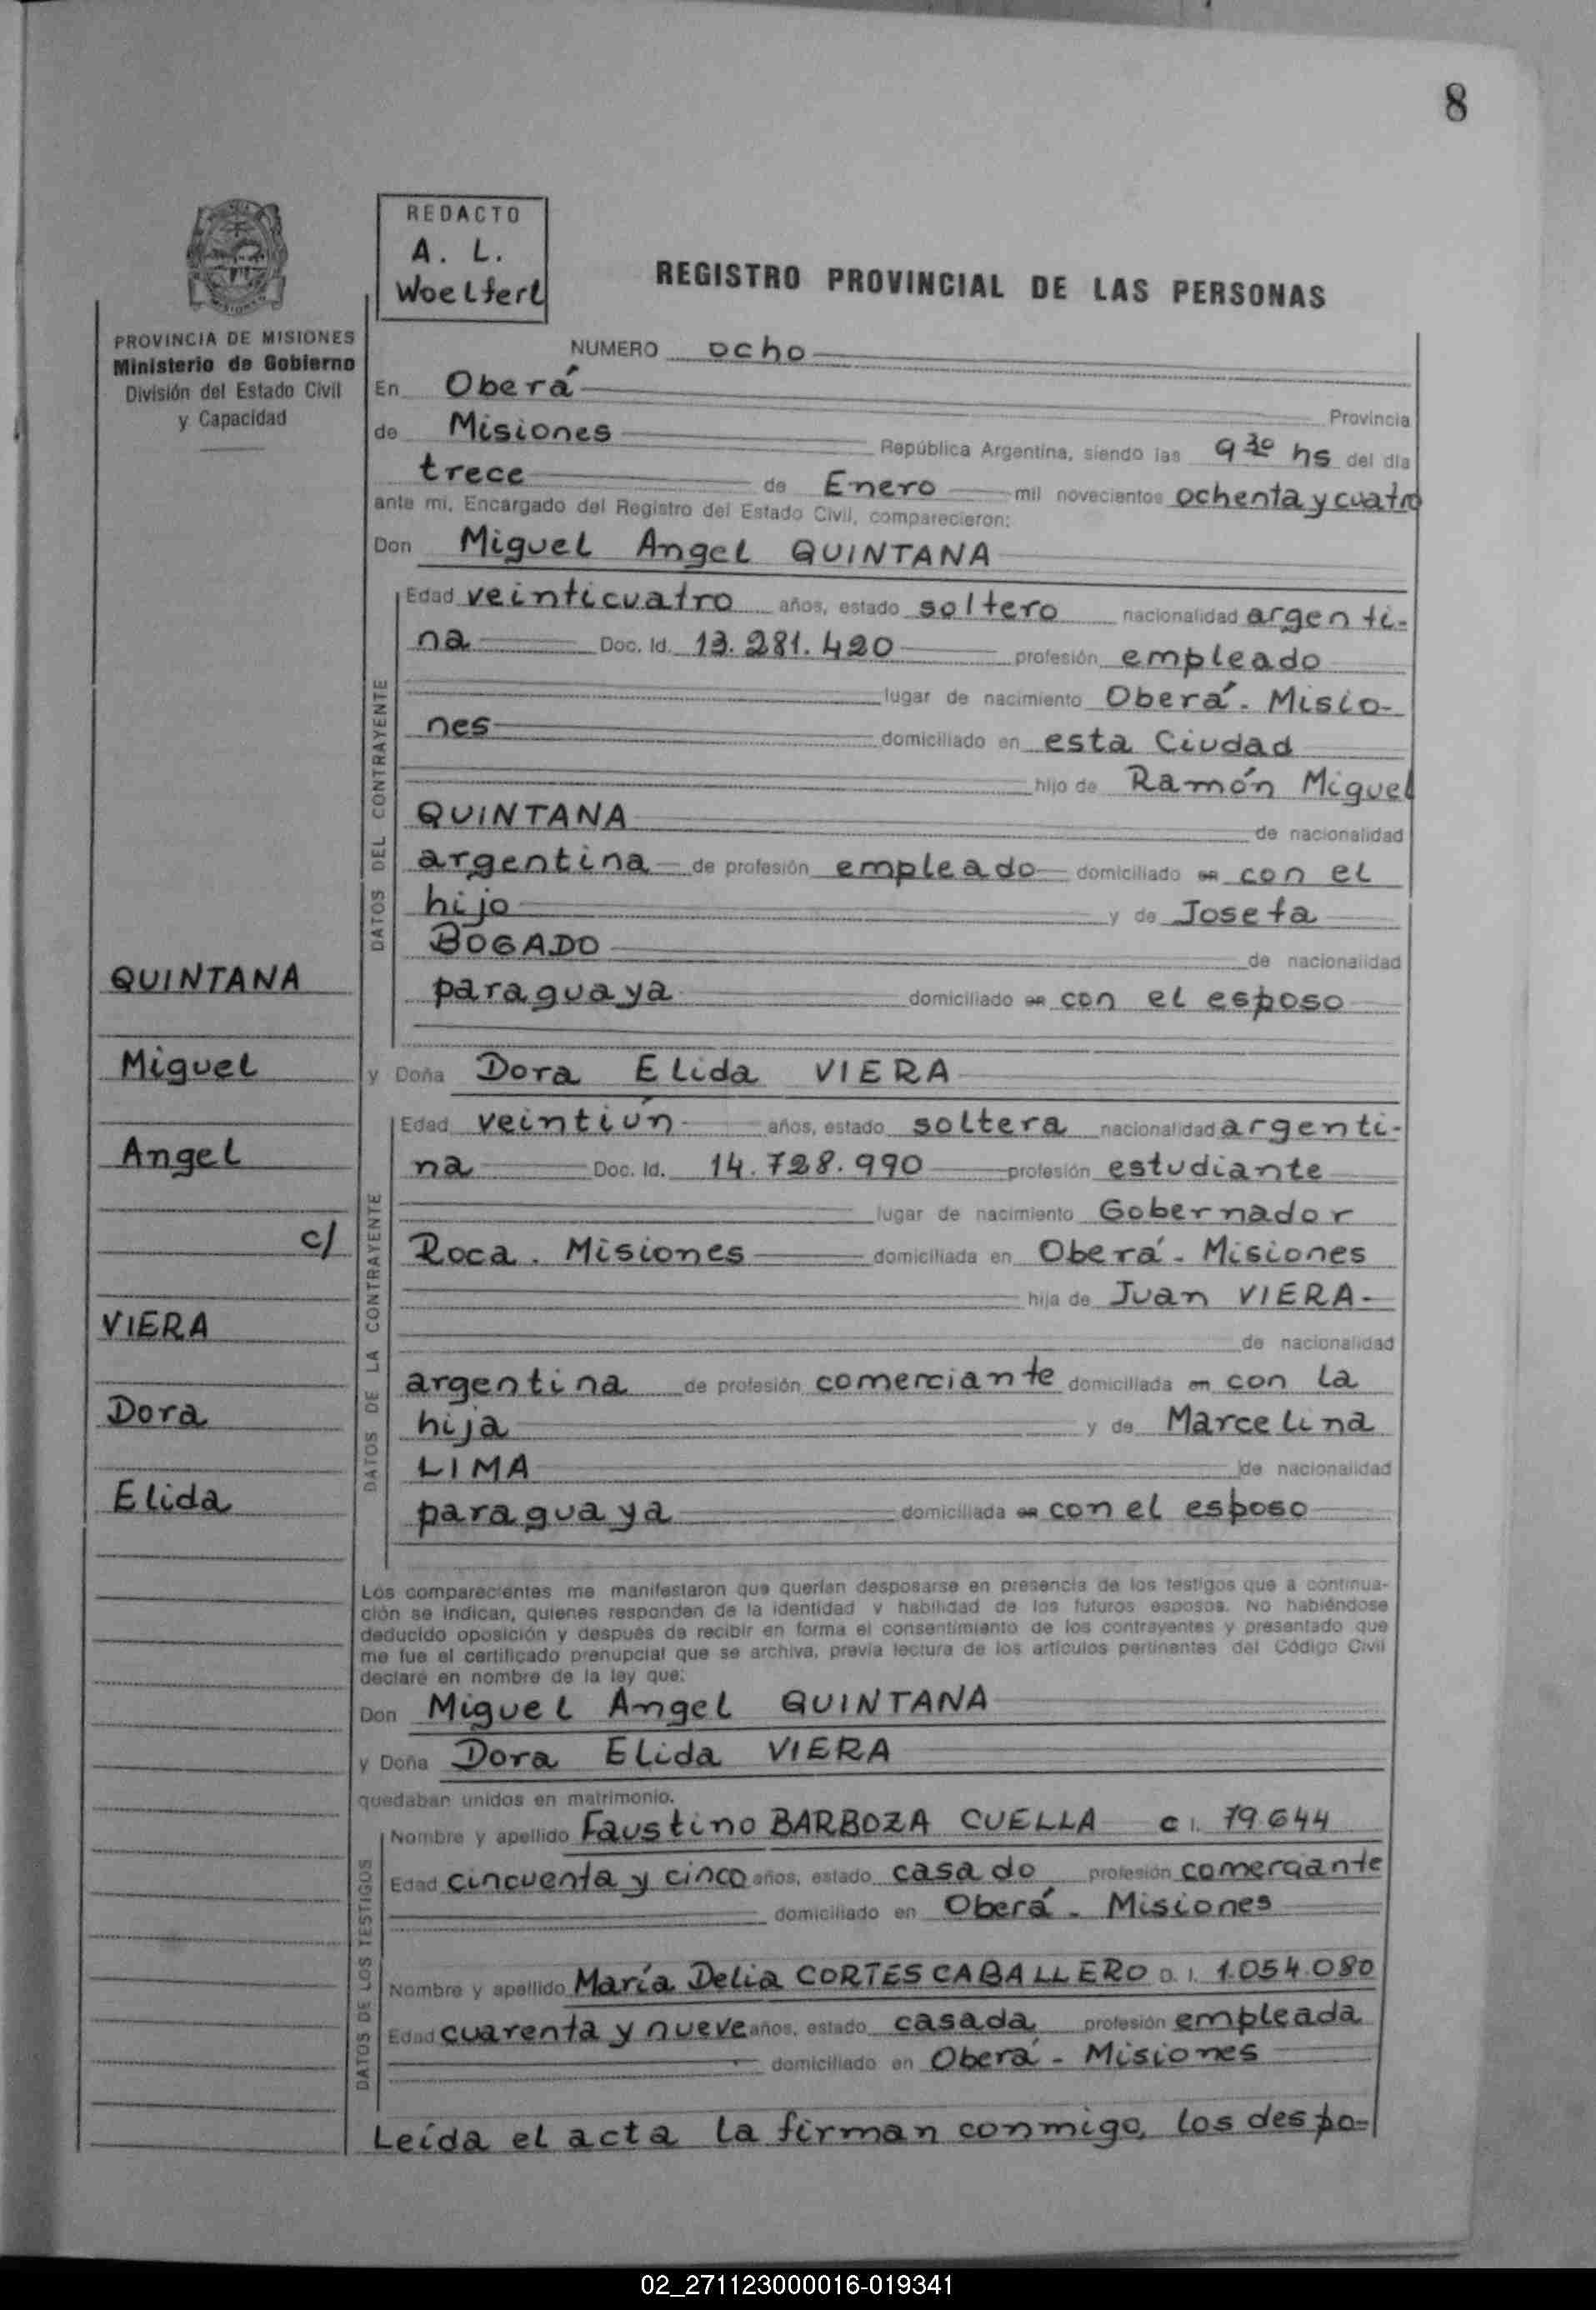 8
REDACTO
A. L.
Woelferl
REGISTRO PROVINCIAL DE LAS PERSONAS
PROVINCIA DE MISIONES
Ministerio de Gobierno
División del Estado Civil
y Capacidad
NUMERO ocho
En Oberá Provincia
de Misiones República Argentina, siendo las 9 30 hs del día
trece de Enero mil novecientos ochenta y cuatro
ante mi, Encargado del Registro del Estado Civil, comparecieron:
Don Miguel Angel QUINTANA
DATOS DEL CONTRAYENTE
Edad veinticuatro años, estado soltero nacionalidad argenti-
na Doc. Id. 13.281.420 profesión empleado
lugar de nacimiento Oberá - Misio-
nes domiciliado en esta Ciudad
hijo de Ramón Miguel
QUINTANA de nacionalidad
argentina de profesión empleado domiciliado en con el
hijo y de Josefa
BOGADO de nacionalidad
paraguaya domiciliado en con el esposo
y Doña Dora Elida VIERA
DATOS DE LA CONTRAYENTE
Edad veintiún años, estado soltera nacionalidad argenti-
na Doc. Id. 14.728.990 profesión estudiante
lugar de nacimiento Gobernador
Roca. Misiones domiciliada en Oberá - Misiones
hija de Juan VIERA-
de nacionalidad
argentina de profesión comerciante domiciliada en con la
hija y de Marcelina
LIMA de nacionalidad
paraguaya domiciliada en con el esposo
QUINTANA
Miguel
Angel
c/
VIERA
Dora
Elida
Los comparecientes me manifestaron que querían desposarse en presencia de los testigos que a continua-
ción se indican, quienes responden de la identidad y habilidad de los futuros esposos. No habiéndose
deducido oposición y después de recibir en forma el consentimiento de los contrayentes y presentado que
me fue el certificado prenupcial que se archiva, previa lectura de los artículos pertinentes del Código Civil
declaré en nombre de la ley que:
Don Miguel Angel QUINTANA
y Doña Dora Elida VIERA
quedaban unidos en matrimonio.
DATOS DE LOS TESTIGOS
Nombre y apellido Faustino BARBOZA CUELLA C I. 79.644
Edad cincuenta y cinco años, estado casado profesión comerciante
domiciliado en Oberá - Misiones
Nombre y apellido María Delia CORTES CABALLERO D. I. 1.054.080
Edad cuarenta y nueve años, estado casada profesión empleada
domiciliado en Oberá - Misiones
Leída el acta la firman conmigo, los despo-
02_271123000016-019341